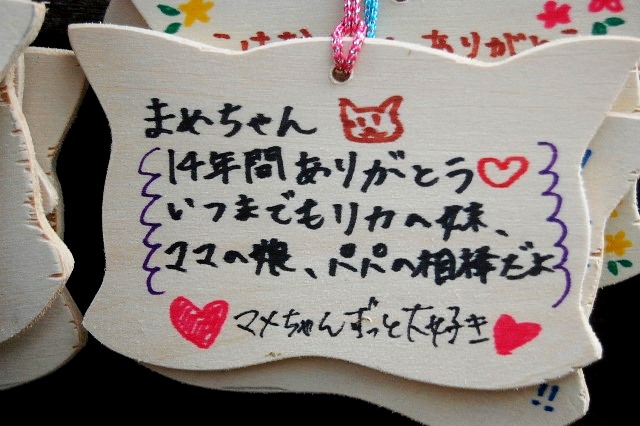 ありがとう
まめちゃん
14年間ありがとう♡
いつまでもリカの妹、
ママの娘、パパの相棒だよ
マメちゃんずっと大好き
!!